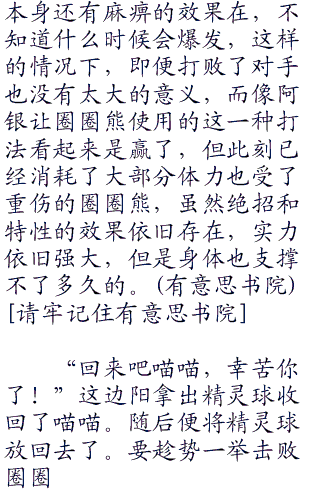 本身还有麻痹的效果在，不
知道什么时候会爆发，这样
的情况下，即便打败了对手
也没有太大的意义，而像阿
银让圈圈熊使用的这一种打
法看起来是赢了，但此刻已
经消耗了大部分体力也受了
重伤的圈圈熊，虽然绝招和
特性的效果依旧存在，实力
依旧强大，但是身体也支撑
不了多久的。(有意思书院)
[请牢记住有意思书院]
“回来吧喵喵，幸苦你
了！”这边阳拿出精灵球收
回了喵喵。随后便将精灵球
放回去了。要趁势一举击败
圈圈